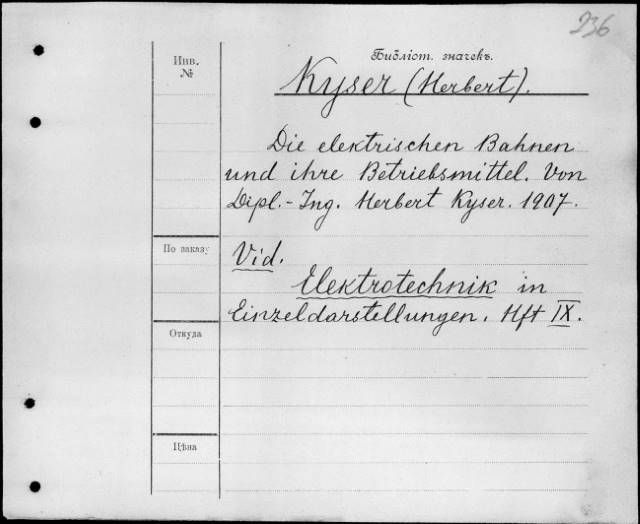 236
Инв.
№
Библіот. значекъ.
Kyser (Herbert).
Die elektrischen Bahnen
und ihre Betriebsmittel. Von
Dipl.-Ing. Herbert Kyser. 1907.
По заказу
Vid.
Elektrotechnik in
Einzeldarstellungen. Hft IX.
Откуда
Цѣна